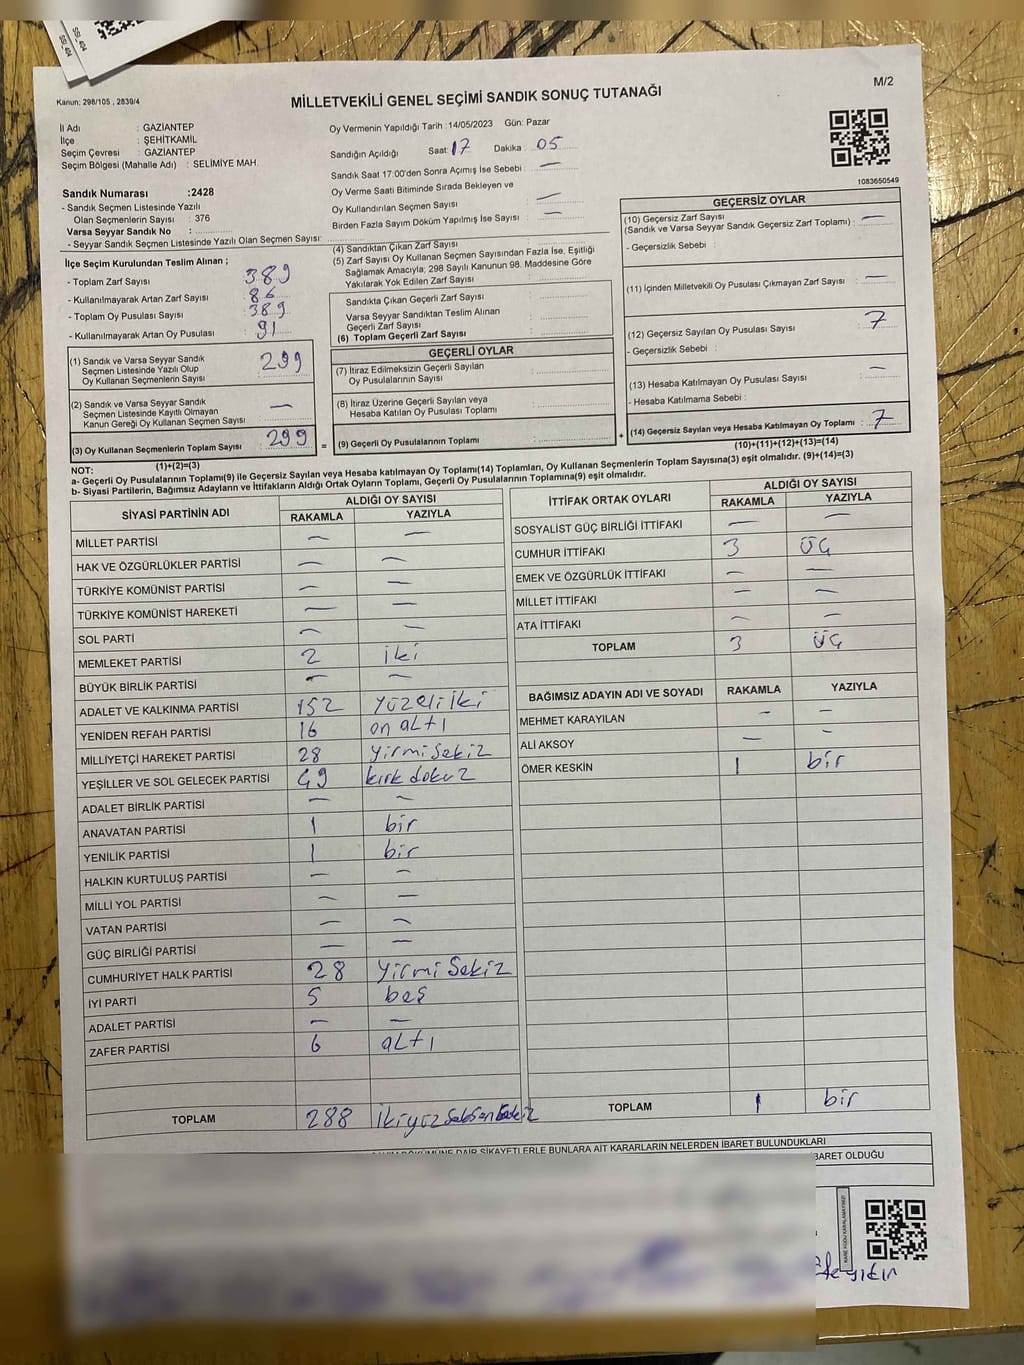 SSİ_404
SSİ_404
Kanun: 298/105 , 2839/4
MİLLETVEKİLİ GENEL SEÇİMİ SANDIK SONUÇ TUTANAĞI
M/2
İl Adı : GAZİANTEP
İlçe : ŞEHİTKAMİL
Seçim Çevresi : GAZİANTEP
Seçim Bölgesi (Mahalle Adı) : SELİMİYE MAH.
Sandık Numarası :2428
- Sandık Seçmen Listesinde Yazılı
Olan Seçmenlerin Sayısı : 376
Varsa Seyyar Sandık No :
- Seyyar Sandık Seçmen Listesinde Yazılı Olan Seçmen Sayısı:
Oy Vermenin Yapıldığı Tarih :14/05/2023 Gün: Pazar
Sandığın Açıldığı Saat: 17 Dakika : 05
Sandık Saat 17:00'den Sonra Açımış İse Sebebi : —
Oy Verme Saati Bitiminde Sırada Bekleyen ve
Oy Kullandırılan Seçmen Sayısı : —
Birden Fazla Sayım Döküm Yapılmış İse Sayısı : —
1083650549
İlçe Seçim Kurulundan Teslim Alınan ;
- Toplam Zarf Sayısı : 389
- Kullanılmayarak Artan Zarf Sayısı : 86
- Toplam Oy Pusulası Sayısı : 389
- Kullanılmayarak Artan Oy Pusulası : 91
(1) Sandık ve Varsa Seyyar Sandık
Seçmen Listesinde Yazılı Olup
Oy Kullanan Seçmenlerin Sayısı : 299
(2) Sandık ve Varsa Seyyar Sandık
Seçmen Listesinde Kayıtlı Olmayan
Kanun Gereği Oy Kullanan Seçmen Sayısı : —
(3) Oy Kullanan Seçmenlerin Toplam Sayısı : 299
(1)+(2)=(3)
=
(4) Sandıktan Çıkan Zarf Sayısı :
(5) Zarf Sayısı Oy Kullanan Seçmen Sayısından Fazla İse, Eşitliği
Sağlamak Amacıyla; 298 Sayılı Kanunun 98. Maddesine Göre
Yakılarak Yok Edilen Zarf Sayısı :
Sandıkta Çıkan Geçerli Zarf Sayısı :
Varsa Seyyar Sandıktan Teslim Alınan
Geçerli Zarf Sayısı :
(6) Toplam Geçerli Zarf Sayısı :
GEÇERLİ OYLAR
(7) İtiraz Edilmeksizin Geçerli Sayılan
Oy Pusulalarının Sayısı :
(8) İtiraz Üzerine Geçerli Sayılan veya
Hesaba Katılan Oy Pusulası Toplamı :
(9) Geçerli Oy Pusulalarının Toplamı :
+
GEÇERSİZ OYLAR
(10) Geçersiz Zarf Sayısı
(Sandık ve Varsa Seyyar Sandık Geçersiz Zarf Toplamı) : —
- Geçersizlik Sebebi :
(11) İçinden Milletvekili Oy Pusulası Çıkmayan Zarf Sayısı : —
(12) Geçersiz Sayılan Oy Pusulası Sayısı : 7
- Geçersizlik Sebebi :
(13) Hesaba Katılmayan Oy Pusulası Sayısı : —
- Hesaba Katılmama Sebebi :
(14) Geçersiz Sayılan veya Hesaba Katılmayan Oy Toplamı : 7
(10)+(11)+(12)+(13)=(14)
NOT:
a- Geçerli Oy Pusulalarının Toplamı(9) ile Geçersiz Sayılan veya Hesaba katılmayan Oy Toplamı(14) Toplamları, Oy Kullanan Seçmenlerin Toplam Sayısına(3) eşit olmalıdır. (9)+(14)=(3)
b- Siyasi Partilerin, Bağımsız Adayların ve İttifakların Aldığı Ortak Oyların Toplamı, Geçerli Oy Pusulalarının Toplamına(9) eşit olmalıdır.
SİYASİ PARTİNİN ADI ALDIĞI OY SAYISI
RAKAMLA YAZIYLA
MİLLET PARTİSİ — —
HAK VE ÖZGÜRLÜKLER PARTİSİ — —
TÜRKİYE KOMÜNİST PARTİSİ — —
TÜRKİYE KOMÜNİST HAREKETİ — —
SOL PARTİ — —
MEMLEKET PARTİSİ 2 iki
BÜYÜK BİRLİK PARTİSİ — —
ADALET VE KALKINMA PARTİSİ 152 Yüzelliİki
YENİDEN REFAH PARTİSİ 16 on altı
MİLLİYETÇİ HAREKET PARTİSİ 28 yirmi Sekiz
YEŞİLLER VE SOL GELECEK PARTİSİ 49 kırk dokuz
ADALET BİRLİK PARTİSİ — —
ANAVATAN PARTİSİ 1 bir
YENİLİK PARTİSİ 1 bir
HALKIN KURTULUŞ PARTİSİ — —
MİLLİ YOL PARTİSİ — —
VATAN PARTİSİ — —
GÜÇ BİRLİĞİ PARTİSİ — —
CUMHURİYET HALK PARTİSİ 28 yirmi Sekiz
İYİ PARTİ 5 beş
ADALET PARTİSİ — —
ZAFER PARTİSİ 6 altı
TOPLAM 288
İTTİFAK ORTAK OYLARI ALDIĞI OY SAYISI
RAKAMLA YAZIYLA
SOSYALİST GÜÇ BİRLİĞİ İTTİFAKI — —
CUMHUR İTTİFAKI 3 ÜÇ
EMEK VE ÖZGÜRLÜK İTTİFAKI — —
MİLLET İTTİFAKI — —
ATA İTTİFAKI — —
TOPLAM 3 ÜÇ
BAĞIMSIZ ADAYIN ADI VE SOYADI RAKAMLA YAZIYLA
MEHMET KARAYILAN — —
ALİ AKSOY — —
ÖMER KESKİN 1 bir
TOPLAM 1 bir
DAİR ŞİKAYETLERLE BUNLARA AİT KARARLARIN NELERDEN İBARET BULUNDUKLARI
BARET OLDUĞU